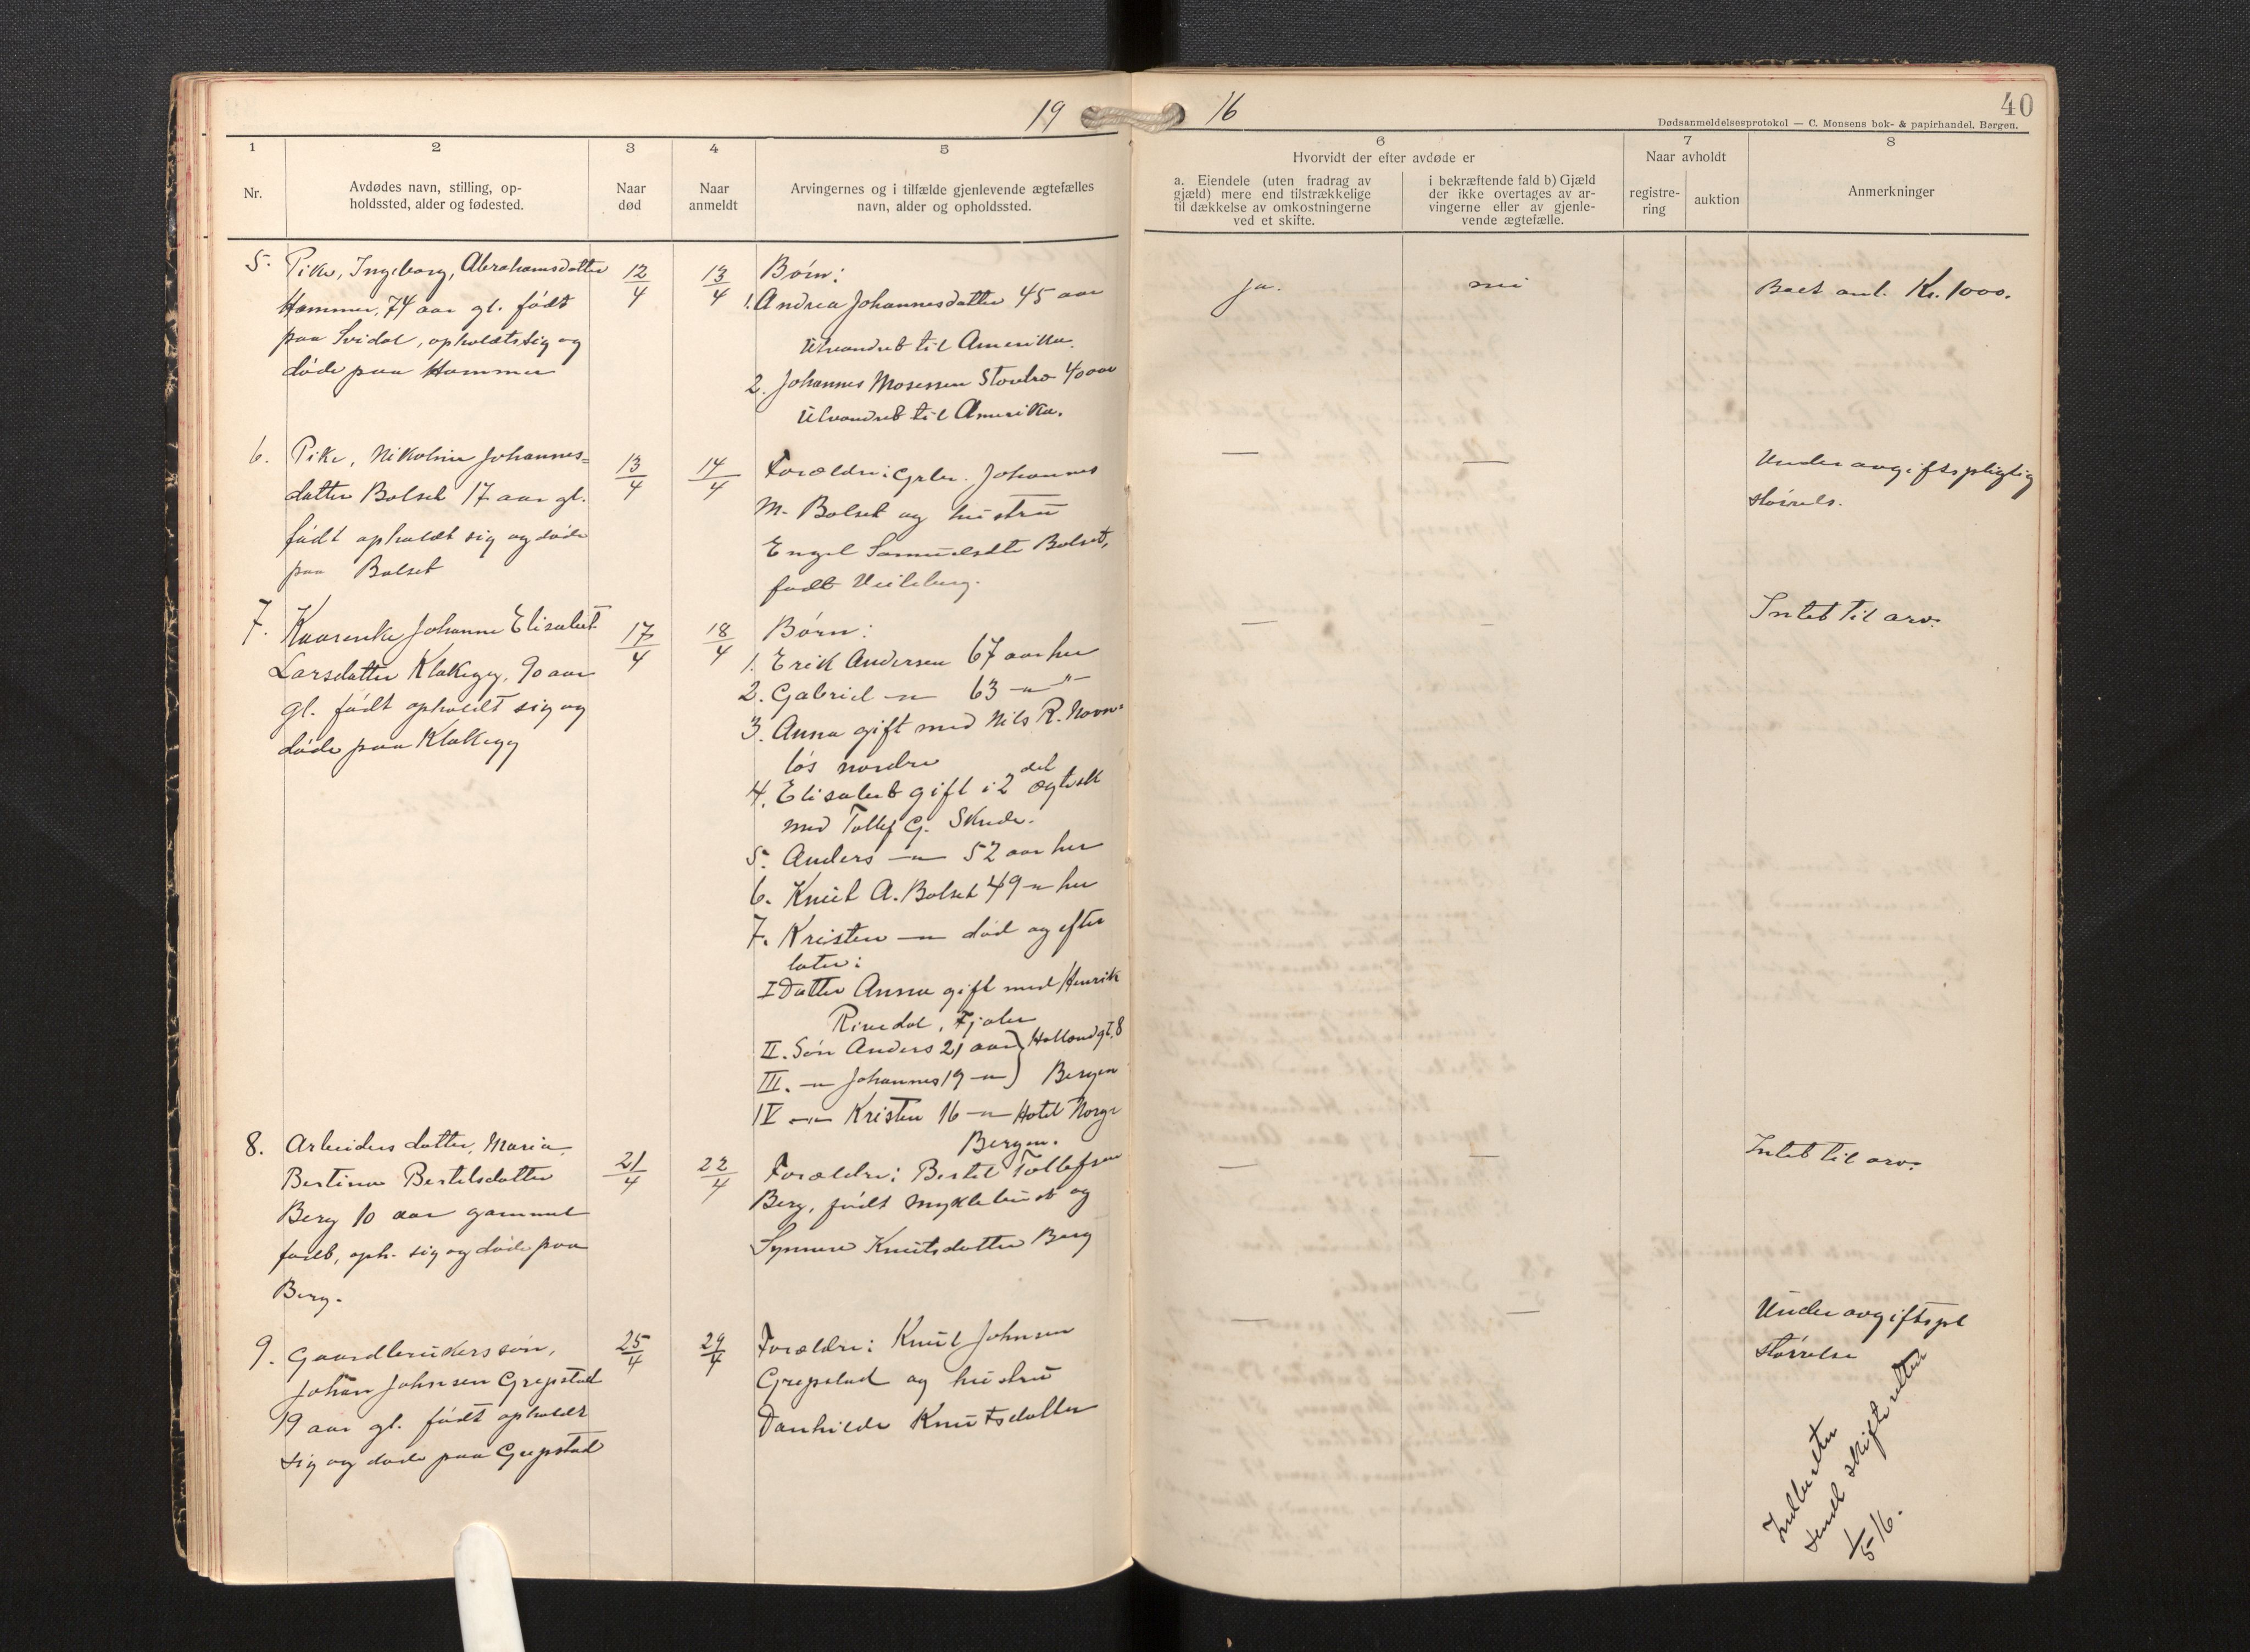 19
16
40
Dødsanmeldelsesprotokol — C. Monsens bok- & papirhandel, Bergen.
1
2
3
4
5
6
7
8
Nr.
Avdødes navn, stilling, op-
holdssted, alder og fødested.
Naar
død
Naar
anmeldt
Arvingernes og i tilfælde gjenlevende ægtefælles
navn, alder og opholdssted.
Hvorvidt der efter avdøde er
a. Eiendele (uten fradrag av
gjæld) mere end tilstrækkelige
til dækkelse av omkostningerne
ved et skifte.
i bekræftende fald b) Gjæld
der ikke overtages av ar-
vingerne eller av gjenle-
vende ægtefælle.
Naar avholdt
registre-
ring
auktion
Anmerkninger
5. Pike, Ingeborg, Abrahamsdatter
Hammer, 74 aar gl. født
paa Svidal, opholdt sig og
døde paa Hammer
12/4
13/4
Børn:
1. Andrea Johannesdatter 45 aar
Utvandret til Amerika.
2. Johannes Mosessen Stovebro 40 aar
Utvandret til Amerika.
ja.
nei
Boet anl. Kr. 1000.
6. Pike, Nikoline Johannes=
datter Bolset 17 aar gl.
født opholdt sig og døde
paa Bolset
13/4
14/4
Forældre: Grbr. Johannes
M. Bolset og hustru
Engel Samuelsdtr Bolset,
født
—
—
Under avgiftspligtig
størrels.
7. Kaarenke Johanne Elisabet
Larsdatter Klakegg, 90 aar
gl. født opholdt sig og
døde paa Klakegg
17/4
18/4
Børn:
1. Erik Andersen 67 aar her
2. Gabriel —"— 63 —"—"—
3. Anna gift med Nils R. Navn=
løs nordre
4. Elisabet gift i 2det Ægtesk
med Tollef G. Skrede.
5. Anders —"— 52 aar her
6. Knut A. Bolset 49 —"— her
7. Kristen —"— død og efter
later:
I Datter Anna gift med Henrik
Rivedal, Fjaler
II. Søn Anders 21 aar } Hollendgt. 8
III. —"— Johannes 19 —"— } Bergen
IV —"— Kristen 16 —"— Hotel Norge
Bergen.
—
—
Intet til arv.
8. Arbeiders datter, Maria
Bertina Bertilsdatter
Berg 10 aar gammel
født, oph. sig og døde paa
Berg.
21/4
22/4
Forældre: Bertil Tollefsen
Berg, født Myklebust og
Synneve Knutsdatter Berg
—
—
Intet til arv.
9. Gaardbrukers søn,
Johan Johnsen Grepstad
19 aar gl. født opholdt
sig og døde paa Grepstad
25/4
29/4
Forældre: Knut Johnsen
Grepstad og hustru
Danhilde Knutsdatter
—
—
Under avgiftspl
størrelse
Indberetn
sendt skifteretten
1/5 16.